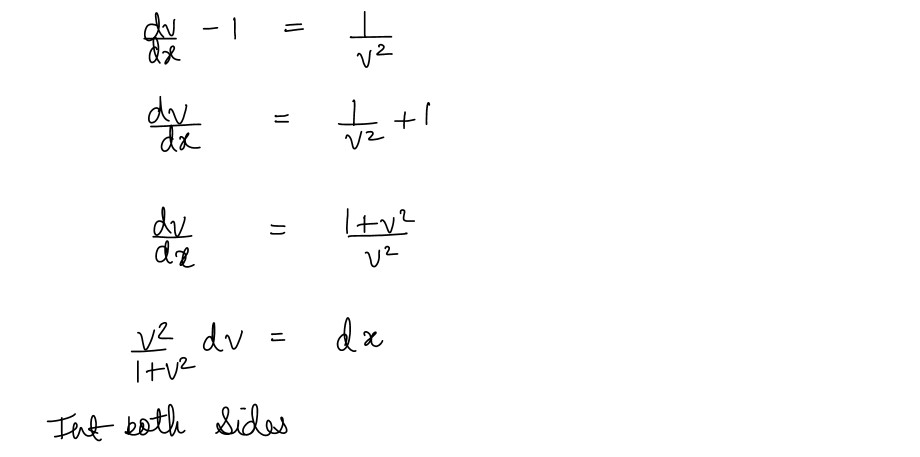 dv/dx - 1 = 1/v²
dv/dx = 1/v² + 1
dv/dx = (1+v²)/v²
v²/(1+v²) dv = dx
Int both sides